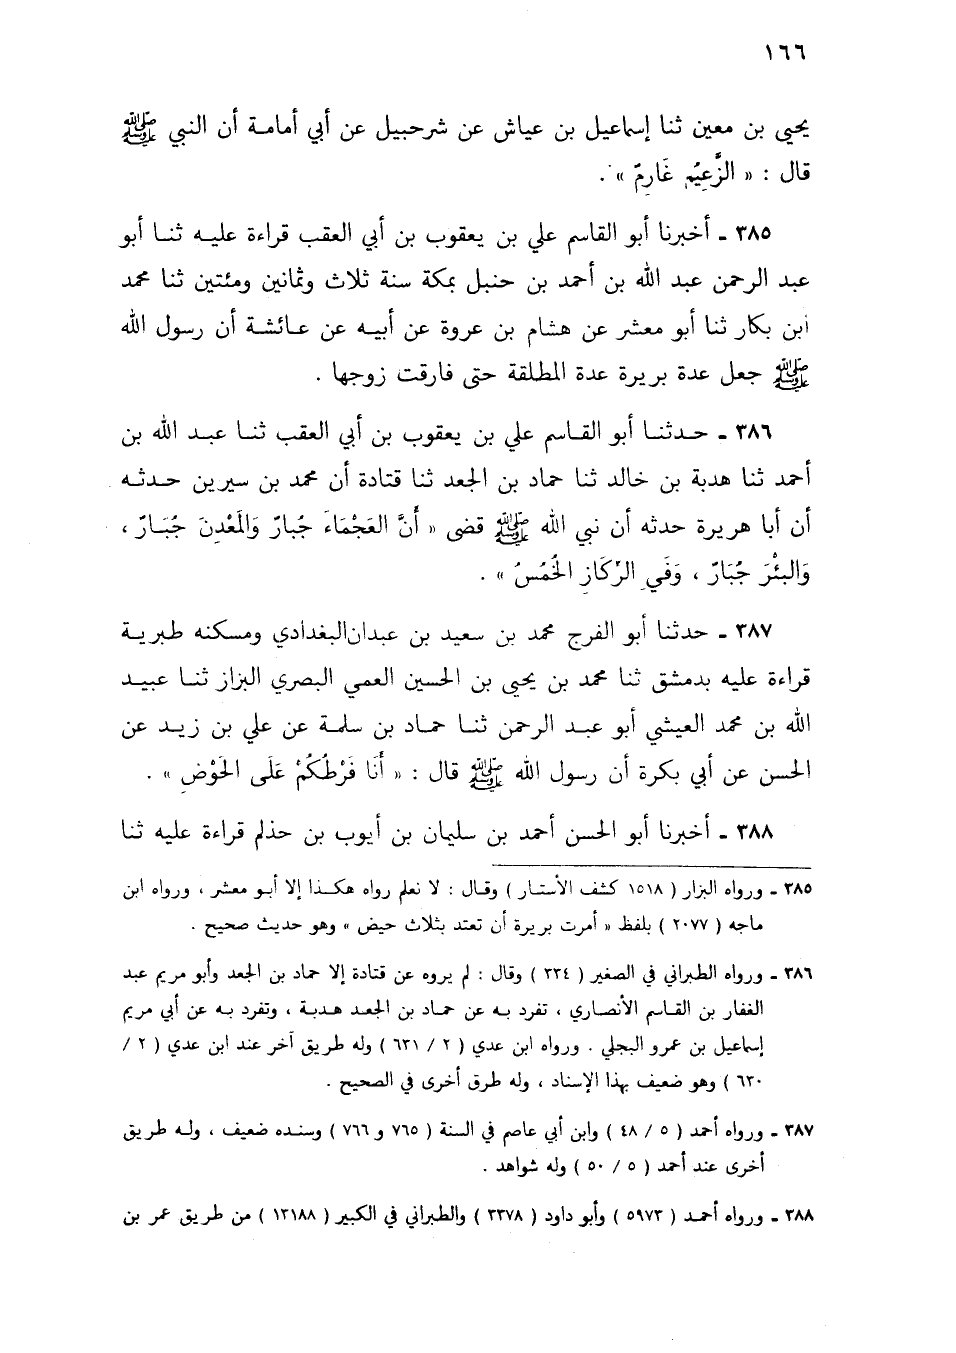 ١٦٦
يحيى بن معين ثنا إسماعيل بن عياش عن شرحبيل عن أبي أمامـة أن النبي ﷺ
قال : « الزَّعِيْمُ غَارِمٌ » .
٣٨٥ ـ أخبرنا أبو القاسم علي بن يعقوب بن أبي العقب قراءة عليـه ثنـا أبو
عبد الرحمن عبد الله بن أحمد بن حنبل بمكة سنة ثلاث وثمانين ومئتين ثنا محمد
ابن بكار ثنا أبو معشر عن هشام بن عروة عن أبيـه عن عـائشـة أن رسول الله
ﷺ جعل عدة بريرة عدة المطلقة حتى فارقت زوجها .
٣٨٦ ـ حـدثنـا أبو القـاسم علي بن يعقوب بن أبي العقب ثنـا عبـد الله بن
أحمد ثنا هدبة بن خالد ثنا حماد بن الجعد ثنا قتادة أن محمد بن سيرين حـدثـه
أن أبا هريرة حدثه أن نبي الله ﷺ قضى « أَنَّ العَجْمَاءَ جُبَارٌ وَالمَعْدِنَ جُبَـارٌ ،
وَالبِئْرَ جُبَارٌ ، وَفِي الرِّكَازِ الخُمْسُ » .
٣٨٧ ـ حدثنا أبو الفرج محمد بن سعيد بن عبدان البغدادي ومسكنه طبريـة
قراءة عليه بدمشق ثنا محمد بن يحيى بن الحسين العمي البصري البزاز ثنـا عبيـد
الله بن محمد العيشي أبو عبـد الرحمن ثنـا حمـاد بن سلمـة عن علي بن زيـد عن
الحسن عن أبي بكرة أن رسول الله ﷺ قال : « أَنَا فَرَطُكُمْ عَلَى الحَوْضِ » .
٣٨٨ ـ أخبرنا أبو الحسن أحمد بن سليمان بن أيوب بن حذلم قراءة عليه ثنا
٣٨٥ ـ ورواه البزار ( ١٥١٨ كشف الأستـار ) وقـال : لا نعلم رواه هكـذا إلا أبـو معشر ، ورواه ابن
ماجه ( ٢٠٧٧ ) بلفظ « أمرت بريرة أن تعتد بثلاث حيض » وهو حديث صحيح .
٣٨٦ ـ ورواه الطبراني في الصغير ( ٣٣٤ ) وقال : لم يروه عن قتادة إلا حماد بن الجعد وأبو مريم عبد
الغفار بن القـاسم الأنصـاري ، تفرد بـه عن حمـاد بن الجعـد هـدبـة ، وتفرد بـه عن أبي مريم
إسماعيل بن عمرو البجلي . ورواه ابن عدي ( ٢ / ٦٣١ ) وله طريق آخر عند ابن عدي ( ٢ /
٦٣٠ ) وهو ضعيف بهذا الإسناد ، وله طرق أخرى في الصحيح .
٣٨٧ ـ ورواه أحمد ( ٥ / ٤٨ ) وابن أبي عاصم في السنة ( ٧٦٥ و ٧٦٦ ) وسنده ضعيف ، ولـه طريق
أخرى عند أحمد ( ٥ / ٥٠ ) وله شواهد .
٣٨٨ ـ ورواه أحمـد ( ٥٩٧٣ ) وأبو داود ( ٣٣٧٨ ) والطبراني في الكبير ( ١٣١٨٨ ) من طريق عمر بن